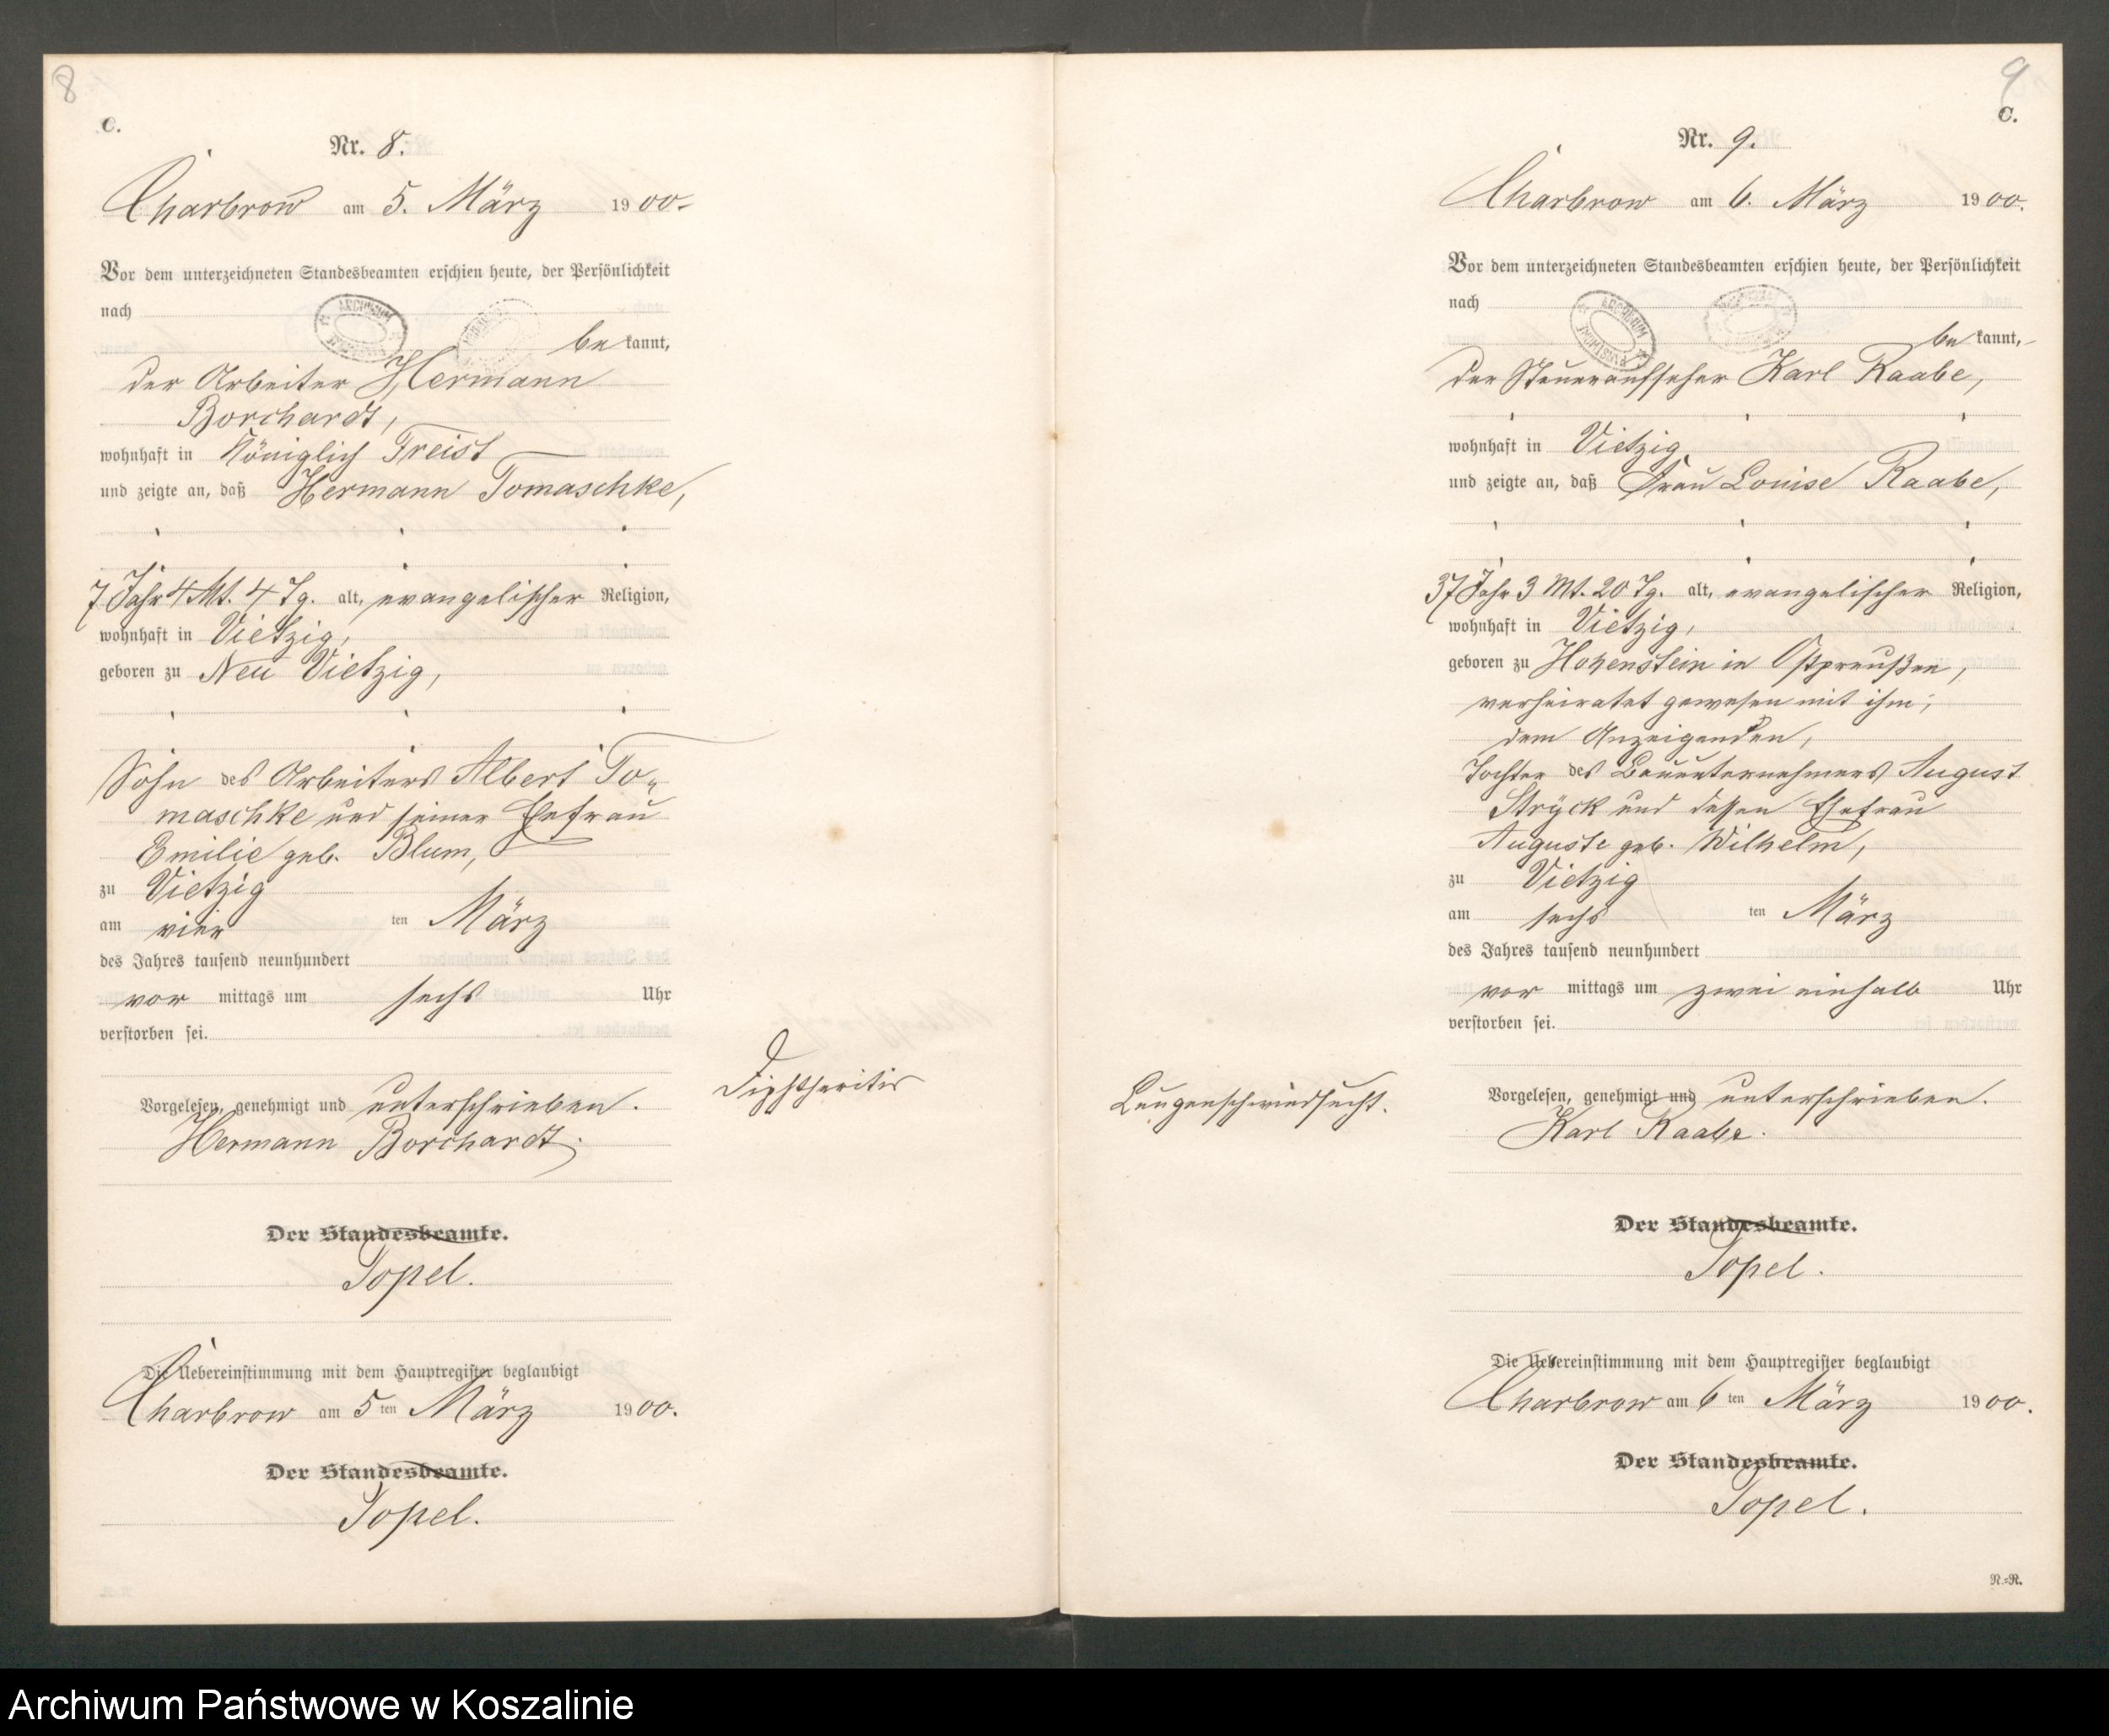 8
C.
Nr. 8.
Charbrow am 5. März 1900.
Vor dem unterzeichneten Standesbeamten erschien heute, der Persönlichkeit
nach
be kannt,
der Arbeiter Hermann
Borchardt,
wohnhaft in Königlich Freist
und zeigte an, daß Hermann Tomaschke,
7 Jahr 4 Mt. 4 Tg. alt, evangelischer Religion,
wohnhaft in Vietzig,
geboren zu Neu Vietzig,
Sohn des Arbeiters Albert To-
maschke und seiner Ehefrau
Emilie geb. Blum,
zu Vietzig
am vier ten März
des Jahres tausend neunhundert
vor mittags um sechs Uhr
verstorben sei.
Diphtheritis
Vorgelesen, genehmigt und unterschrieben.
Hermann Borchardt.
Der Standesbeamte.
Topel.
Die Uebereinstimmung mit dem Hauptregister beglaubigt
Charbrow am 5 ten März 1900.
Der Standesbeamte.
Topel.
9
C.
Nr. 9.
Charbrow am 6. März 1900.
Vor dem unterzeichneten Standesbeamten erschien heute, der Persönlichkeit
nach
be kannt,
der Steueraufseher Karl Raabe,
wohnhaft in Vietzig
und zeigte an, daß Frau Louise Raabe,
37 Jahr 3 Mt. 20 Tg. alt, evangelischer Religion,
wohnhaft in Vietzig,
geboren zu Hohenstein in Ostpreußen,
verheiratet gewesen mit ihm,
dem Anzeigenden,
Tochter des Bauunternehmers August
Strÿck und dessen Ehefrau
Auguste geb. Wilhelm,
zu Vietzig
am sechs ten März
des Jahres tausend neunhundert
vor mittags um zwei einhalb Uhr
verstorben sei.
Lungenschwindsucht.
Vorgelesen, genehmigt und unterschrieben.
Karl Raabe.
Der Standesbeamte.
Topel.
Die Uebereinstimmung mit dem Hauptregister beglaubigt
Charbrow am 6 ten März 1900.
Der Standesbeamte.
Topel.
N.=R.
Archiwum Państwowe w Koszalinie